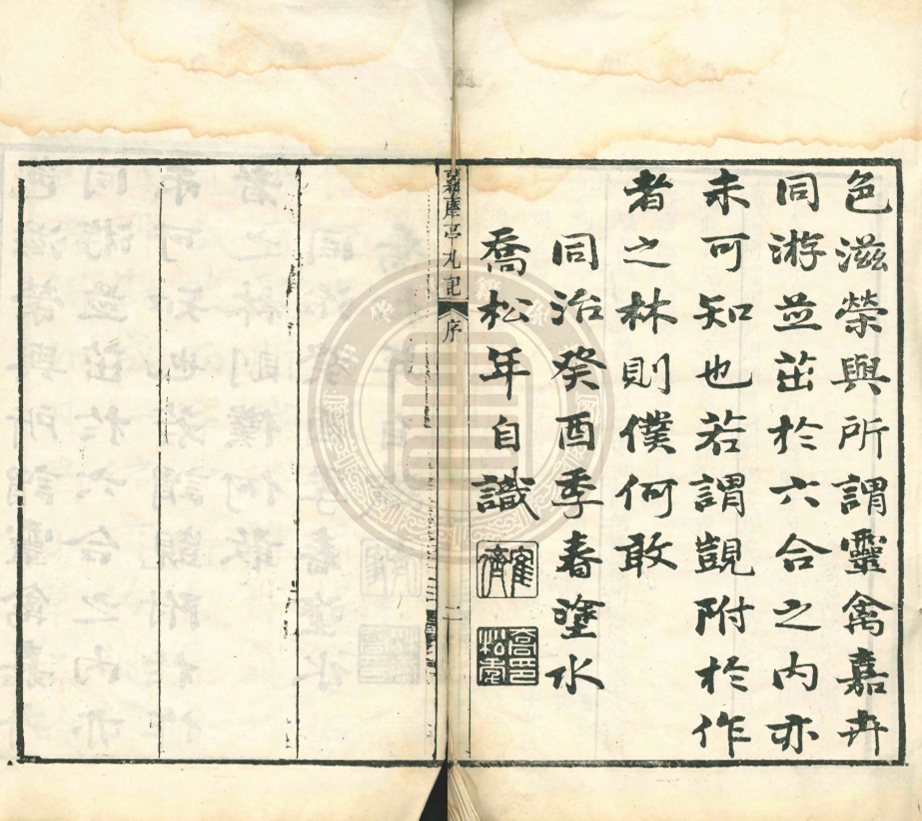 色滋榮與所謂靈禽嘉卉
同游並茁於六合之内亦
未可知也若謂覬附於作
者之林則僕何敢
同治癸酉季春塗水
喬松年自識
鶴儕
喬印松年
蘿藦亭札記
序
二